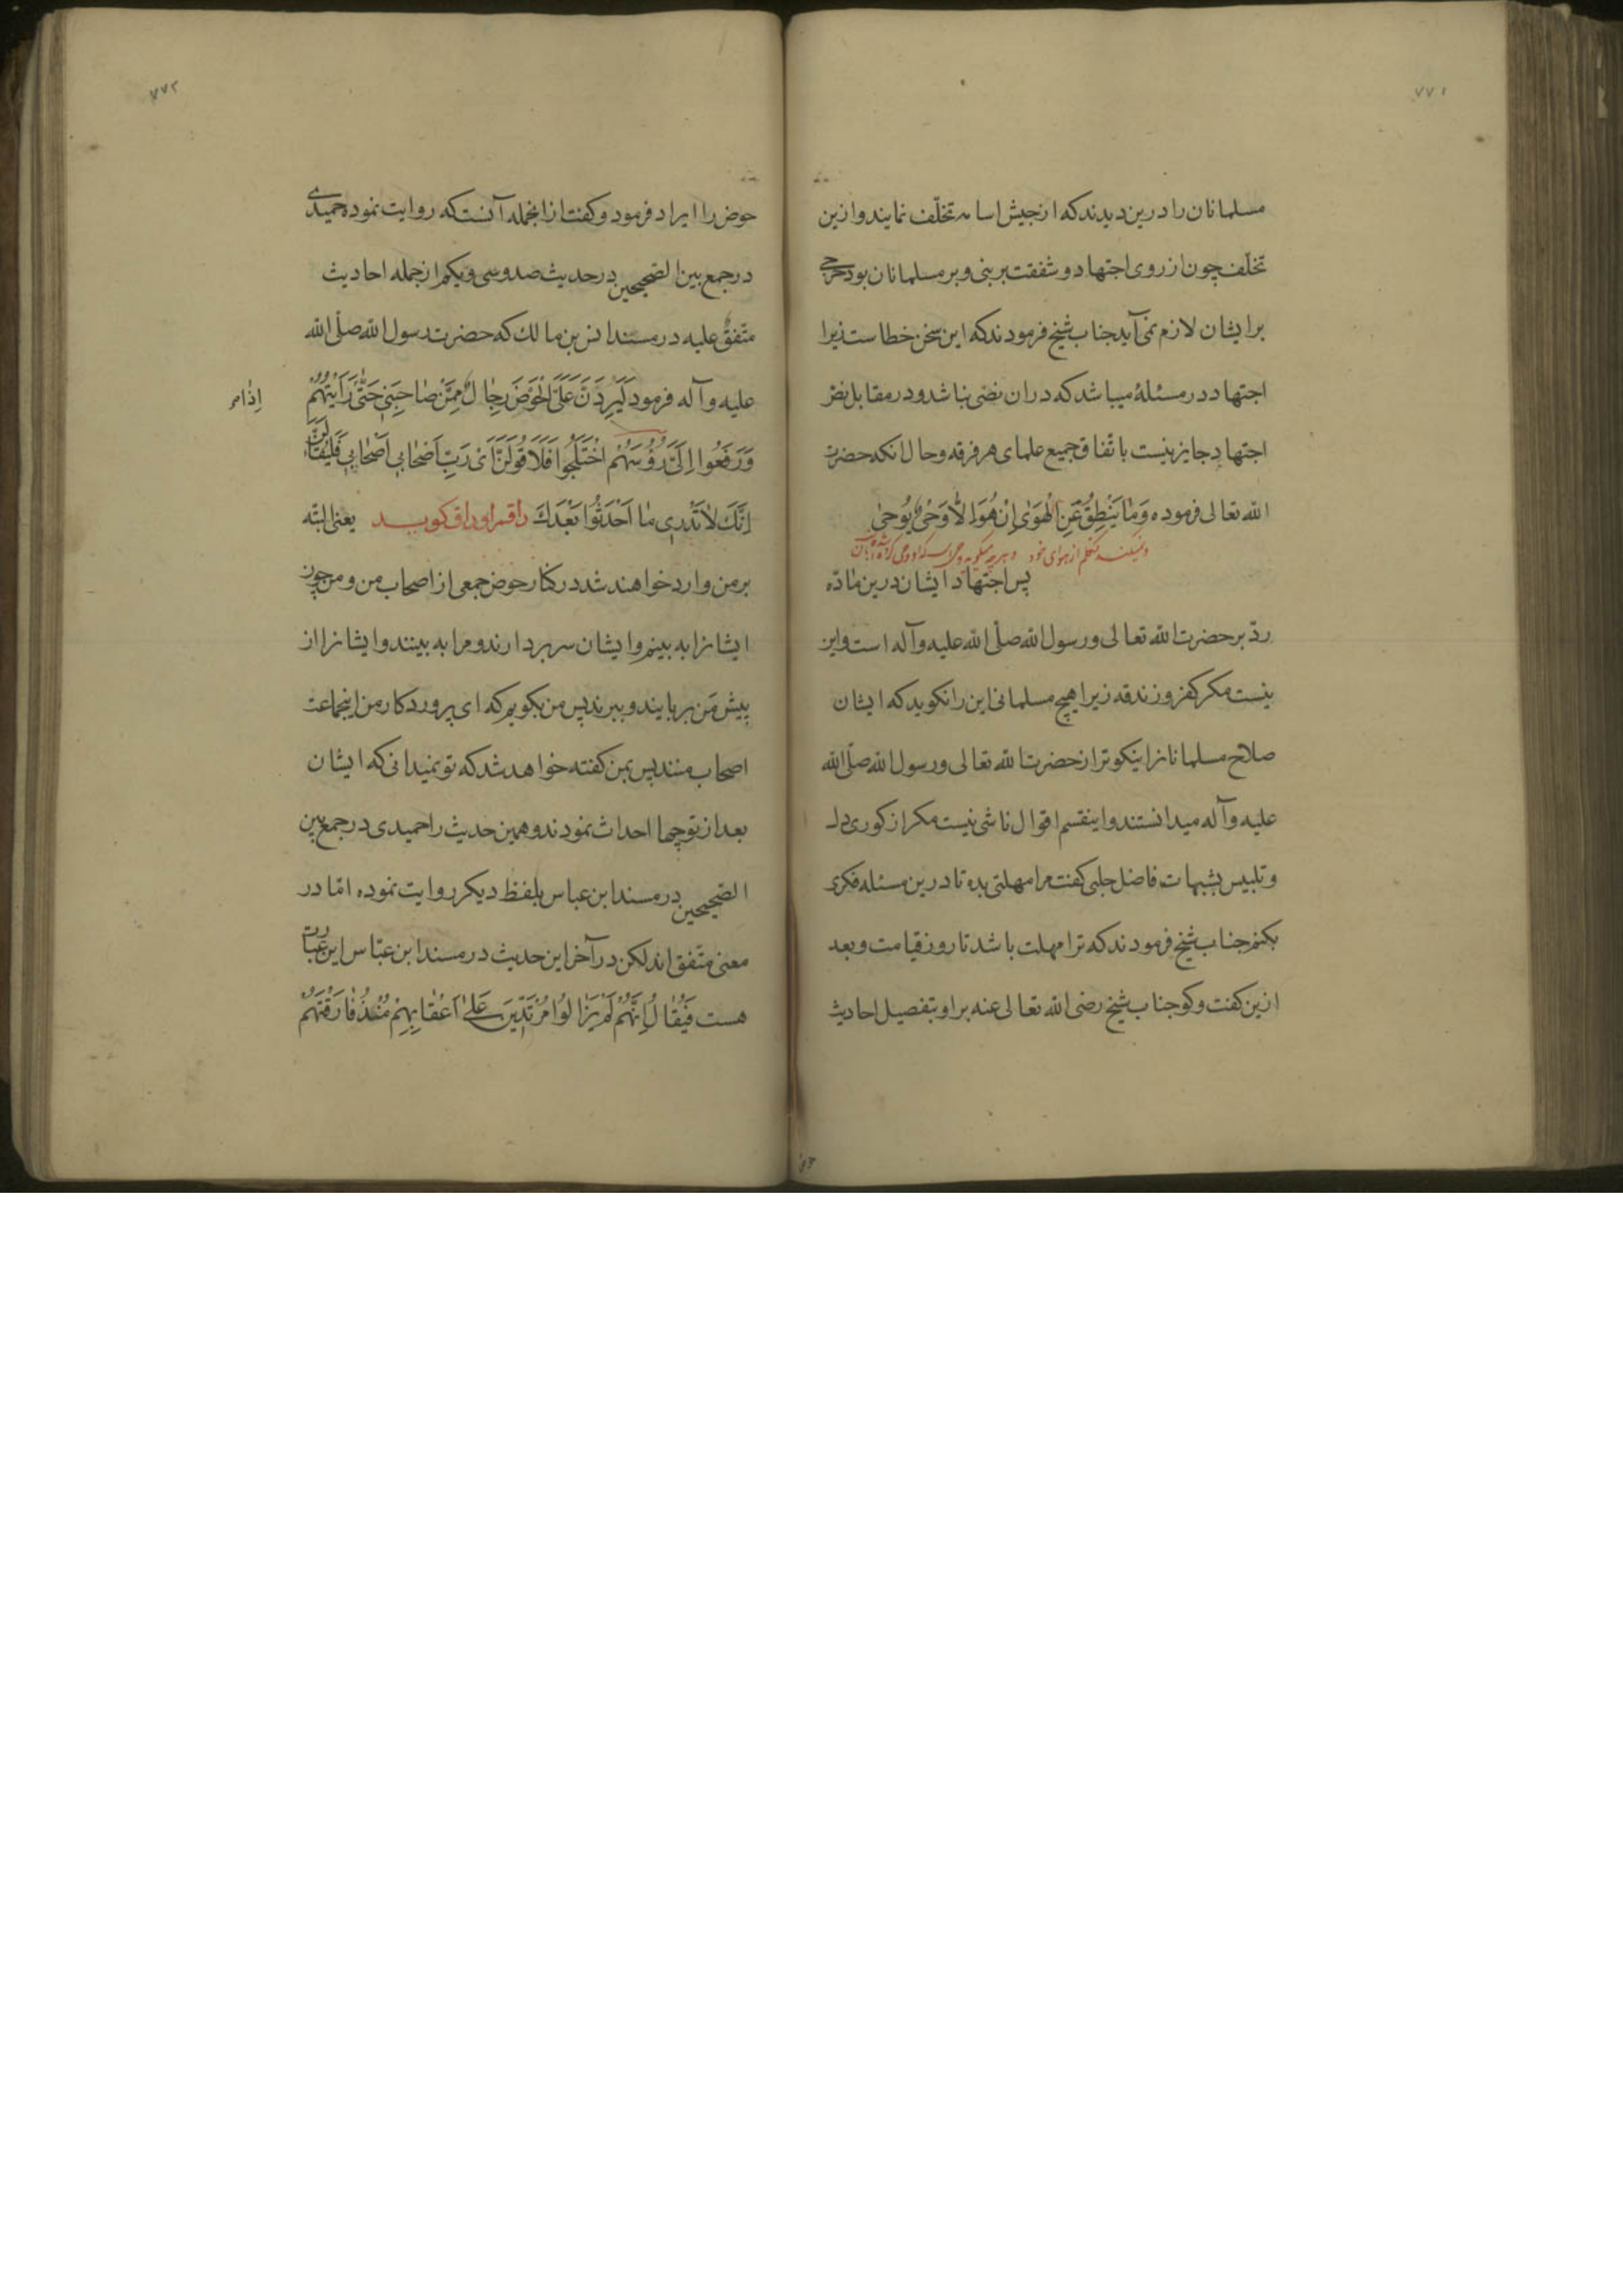 ٧٧١
مسلمانان را درین دیدند که از جیش اسامه تخلّف نمایند و ازین
تخلّف چون از روی اجتهاد و شفقت بر بنی و بر مسلمانان بود حرجی
بر ایشان لازم نمی آید جناب شیخ فرمودند که این سخن خطاست زیرا
اجتهاد در مسئلهٔ میباشد که در ان نصّی نباشد و در مقابل نصّ
اجتهاد جایز نیست باتّفاق جمیع علمای هر فرقه و حال انکه حضرت
الله تعالی فرموده وَمٰا یَنْطِقُ عَنِ الْهَوَیٰ اِنْ هُوَ اِلّٰا وَحْیٌ یُوحیٰ
و نمیکند تکلم از هوای خود و هرچه میکوید وحی است که
پس اجتهاد ایشان درین مٰادّه
ردّ بر حضرت الله تعالی و رسول الله صلّی الله علیه وآله است و این
نیست مکر کفر و زندقه زیرا هیچ مسلمانی این را نکوید که ایشان
صلاح مسلمانانرا نیکوتر از حضرت الله تعالی و رسول الله صلّی الله
علیه وآله میدانستند و اینقسم اقوال ناشی نیست مکر از کوری دل
و تلبیس بشبهات فاضل حلبی کفت مرا مهلتی بده تا درین مسئله فکری
بکنم جناب شیخ فرمودند که ترا مهلت باشد تا روز قیامت و بعد
ازین کفت وکو جناب شیخ رضی الله تعالی عنه بر او بتفصیل احادیث
حوض
٧٧٢
حوض را ایراد فرمود و کفت از انجمله آنست که روایت نموده حمیدی
در جمع بین الصّحیحین در حدیث صد و سی و یکم از جمله احادیث
متّفقٌ علیه در مسند انس بن مالك که حضرت رسول الله صلّی الله
علیه وآله فرمود لَیَرِدَنَّ عَلَیَّ الْحَوْضَ رِجٰالٌ مِمَّنْ صٰاحَبَنِی حَتّٰی رَاَیْتُهُمْ
اِذٰا
وَرَفَعُوا اِلَیَّ رُؤُسَهُمْ اخْتُلِجُوا فَلَاَقُولَنَّ اَیْ رَبِّ اَصْحٰابِی اَصْحٰابِی فَلَیُقٰالَنَّ
اِنَّكَ لٰا تَدْرِی مٰا اَحْدَثُوا بَعْدَكَ راقم اوراق کوید یعنی البتّه
بر من وارد خواهند شد در کنار حوض جمعی از اصحاب من و من چون
ایشانرا به بینم و ایشان سر بردارند و مرا به بینند و ایشانرا از
پیش من بربایند و ببرند پس من بکویم که ای پروردکار من اینجماعت
اصحاب منند پس بمن کفته خواهد شد که تو نمیدانی که ایشان
بعد از تو چها احداث نمودند و همین حدیث را حمیدی در جمع بین
الصّحیحین در مسند ابن عباس بلفظ دیکر روایت نموده امّا در
معنی متّفق اند لکن در آخر این حدیث در مسند ابن عبّاس این عبارت
هست فَیُقٰالُ اِنَّهُمْ لَمْ یَزٰالُوا مُرْتَدِّینَ عَلیٰ اَعْقٰابِهِمْ مُنْذُ فٰارَقْتَهُمْ